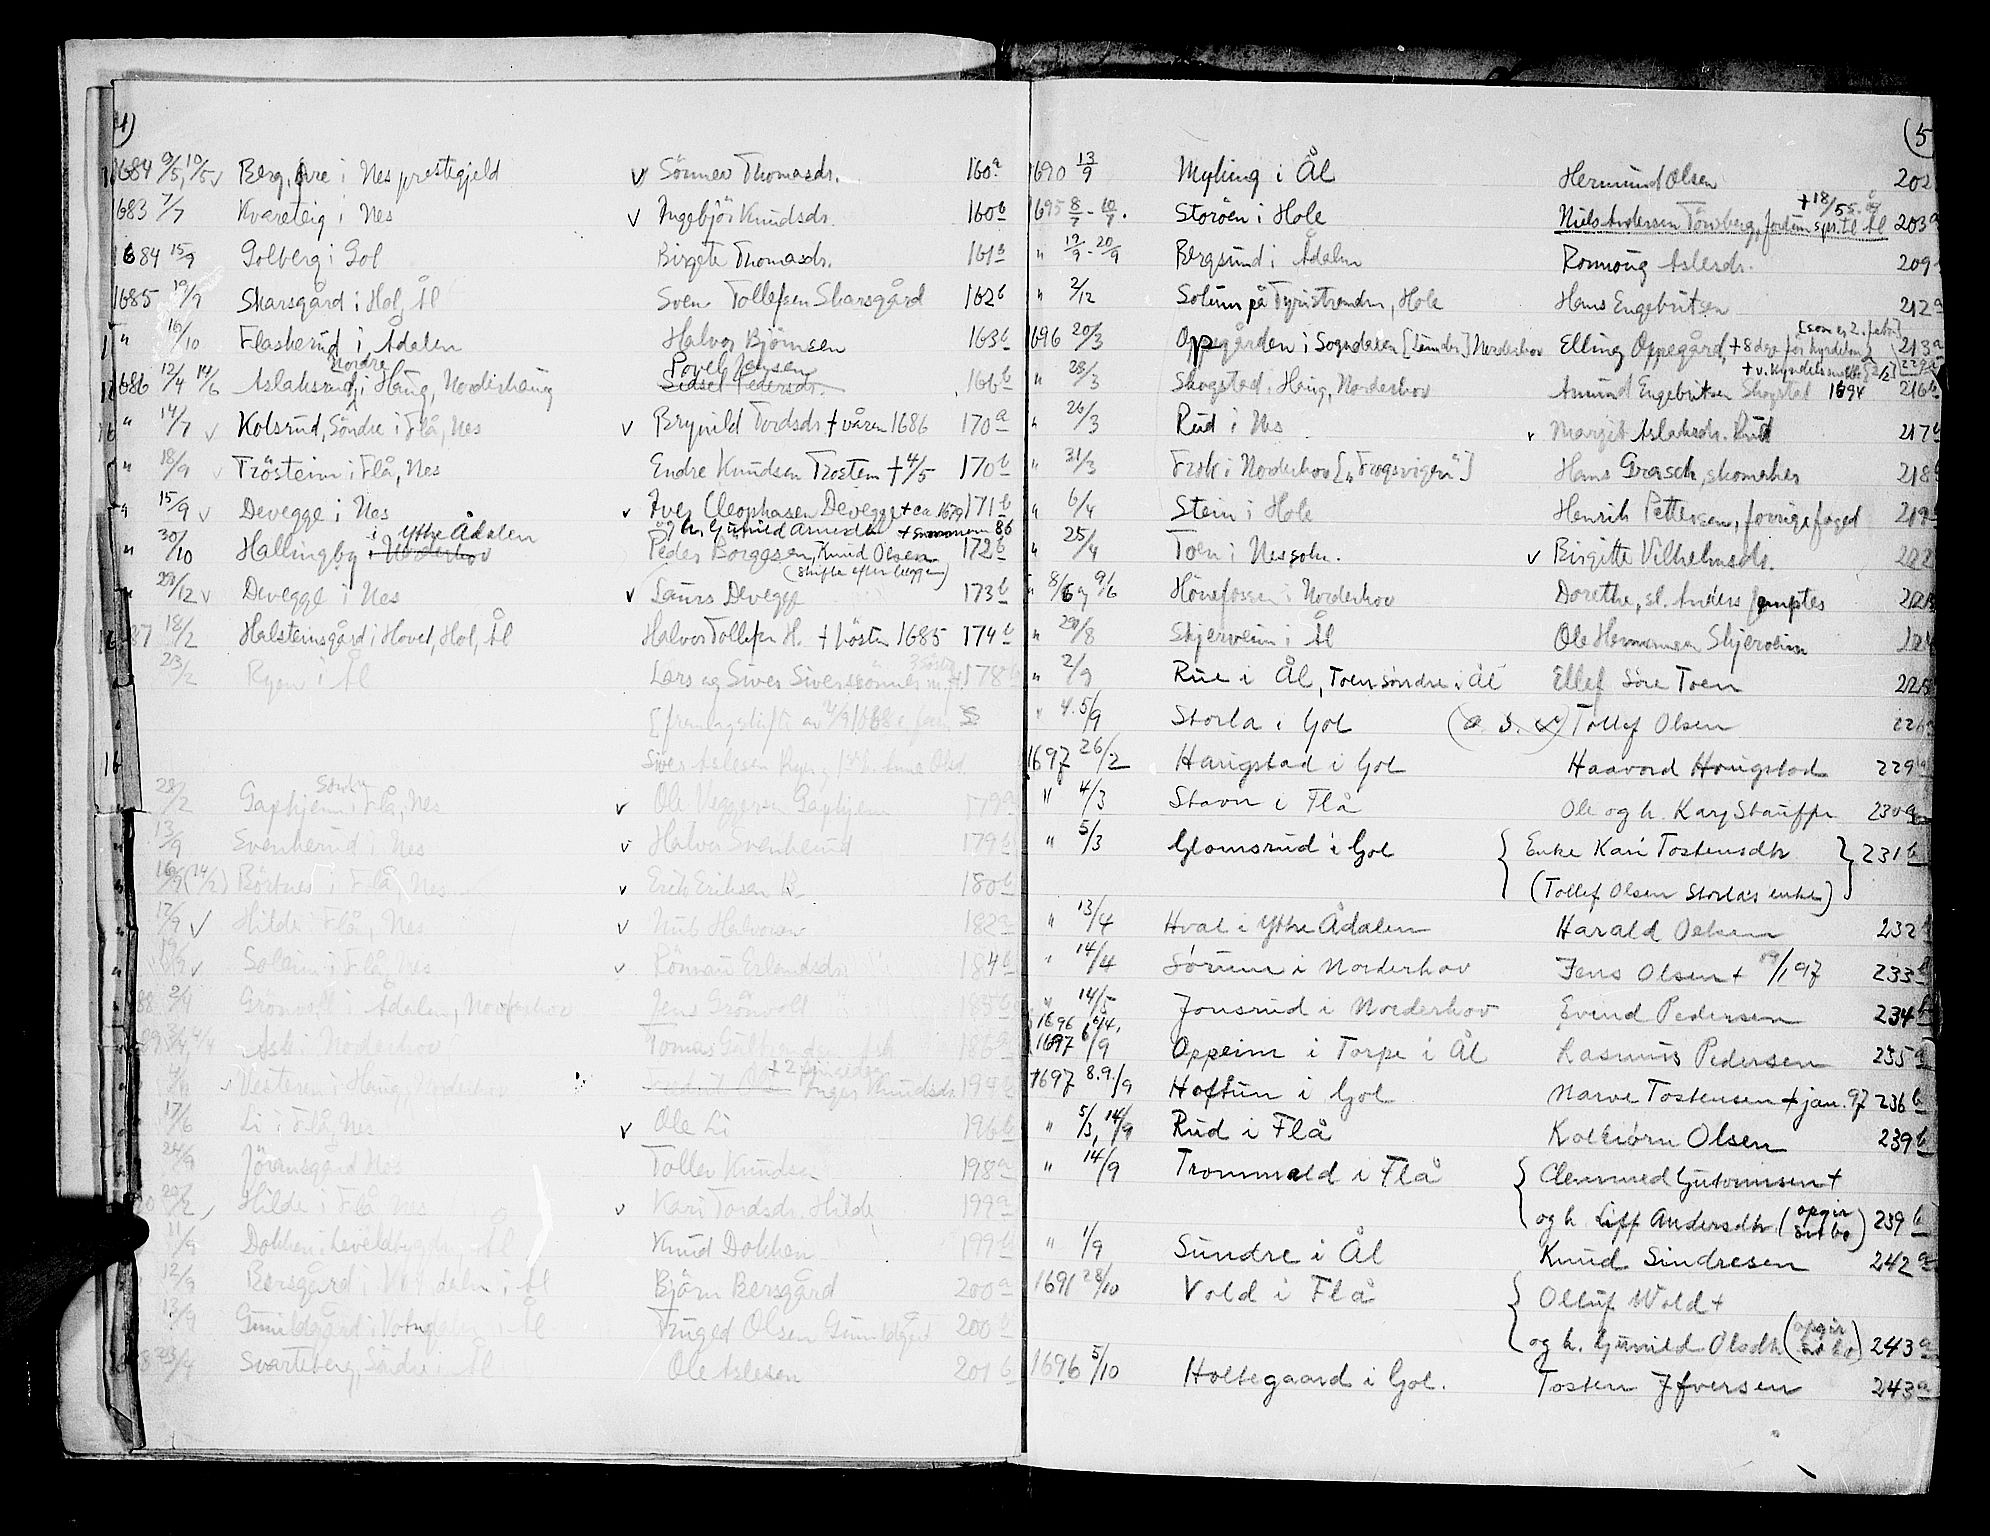 4)
1684 9/5, 10/5 v Berg, övre i Nes prestegjeld v Sönnev Thomasdr. 160a
1683 7/7 Kvareteig i Nes v Ingebjör Knudsdr. 160b
1684 15/9 Golberg i Gol Birgete Thomasdr. 161a
1685 Skarsgård i Hol, Ål Sven Tollefsen Skarsgård 162b
" 16/10 Flaskerud i Ådalen Halvor Björnsen 163b
1686 12/4 14/6 Aslaksrud, Nordre i Haug, Norderhaug Povel Jensen Sidsel Pedersdr. 166b
" 14/7 v Kolsrud, Söndre i Flå, Nes v Brynild Tordsdr + våren 1686 170a
" 18/9 v Trösteim i Flå, Nes Endre Knudsen Trostem + 4/5 170b
" 15/9 v Devegge i Nes v Iver Cleophasen Devegge + ca 1679 171b
og h. Gunild Arnesdtr + sommeren 86
" 30/10 Hallingby i Norderhov i Ytre Ådalen Peder Börgesen, Knud Olsen 172b
(skifte efter begge)
" 29/12 v Devegge i Nes v Laurs Devegge 173b
1687 18/2 Halsteinsgård i Hovet, Hol, Ål Halvor Tollefsen H. + hösten 1685 174b
23/2 Ryen i Ål Lars og Siver Siverssönner 178b
Siver Aslesen Rye
28/2 Gaptjern Söndre i Flå, Nes v Ole Veggersen Gaptjern 179a
13/9 Svenkerud i Nes v Halvor Svenkerud 179b
16/9 (14/2) Börtnes i Flå, Nes v Erik Eriksen B. 180b
17/9 v Hilde i Flå, Nes v Nub Halvorsen 182a
19/9 v Soleim i Flå, Nes v Rönnau Erlandsdr 184b
88 2/4 Grönvoll i Ådalen, Norderhov Jens Grönvolt 185b
89 3/4, 4/4 Ask i Norderhov Tomas 186a
v Vesteren i Haug, Norderhov Inger Knudsdr. 194b
17/6 Li i Flå, Nes v Ole Li 196b
24/9 Jöransgård Nes Tollev Knudsen 198a
20/2 v Hilde i Flå Nes v Kari Tordsdr. Hilde 199a
11/9 Dokken i Leveldbygden, Ål Knud Dokken 199b
12/9 Bersgård i Votndalen i Ål Björn Bersgård 200a
13/9 Gunildgård i Votndalen i Ål Truged Olsen Gunildgård 200b
23/4 Svarteberg, Söndre i Ål Ole Aslesen 201b
(5
1690 13/9 Myking i Ål Hermund Olsen 202
1695 8/7 - 10/7. Storöen i Hole Niels Andersen Tönsberg, fordum spr. til Ål + 18/5 203a
" 19/9 - 20/9 Bergsund i Ådalen Ronnoug Aslesdr. 209
" 2/12 Solum på Tyristranden, Hole Hans Engebritsen 212a
1696 20/3 Oppegården i Sognedalen [Lunder] Norderhov Elling Oppegård, + 8 dge för kyndelm. [som er 2. febr.] 213a
+ v. kyndelsmesse [2/2] 229a
" 28/3 Skogstad i Haug, Norderhov Amund Engebritsen Skogstad 1694 216b
" 26/3 Rud i Nes v Margit Aslaksdr. Rud 217b
" 31/3 Frok i Norderhov ["Frogsvigen"] Hans Grasch, skomaker 218
" 6/4 Stein i Hole Henrik Pettersen, forrige foged 219
" 25/4 Toen i Nes sokn. v Birgitte Vilhelmsdr. 222
" 8/6 og 9/6 Hönefossen i Norderhov Dorethe, sl. Anders Jemptes
" 29/8 Skjerveim i Ål Ole Hermansen Skjerveim
" 2/9 Rue i Ål, Toen Söndre i Ål Ellef Söre Toen 225
" 4. 5/9 Storla i Gol Tollef Olsen 226
1697 26/2 Harigstad i Gol Haavord Hougstad 229a
" 4/3 Stavn i Flå Ole og h. Kary Stauffn 230a
" 5/3 Glomsrud i Gol { Enke Kari Tostensdtr } 231b
(Tollef Olsen Storla's enke)
" 13/4 Hval i Ytre Ådalen Harald Oelsen 232b
" 14/4 Sörum i Norderhov Jens Olsen + 97 233b
" 14/5 Jonsrud i Norderhov Evind Pedersen 234b
1696 6/4,
1697 6/9 Oppeim i Torpe i Ål Rasmus Pedersen 235a
1697 8.9./9 Hoftun i Gol Narve Tostensen + jan. 97 236b
" 5/3, 14/9 Rud i Flå Kolbiörn Olsen 239b
" 14/9 Trommald i Flå { Clemmed Guttormsen +
og h. Liff Andersdtr (opgir sit bo) 239b
" 1/9 Sundre i Ål Knud Sindresen 242a
1691 28/10 Vold i Flå { Olluf Wold +
og h. Gunild Olsdtr (opgir sit bo) 243a
1696 5/10 Holtegaard i Gol. Tosten Ifversen 243a